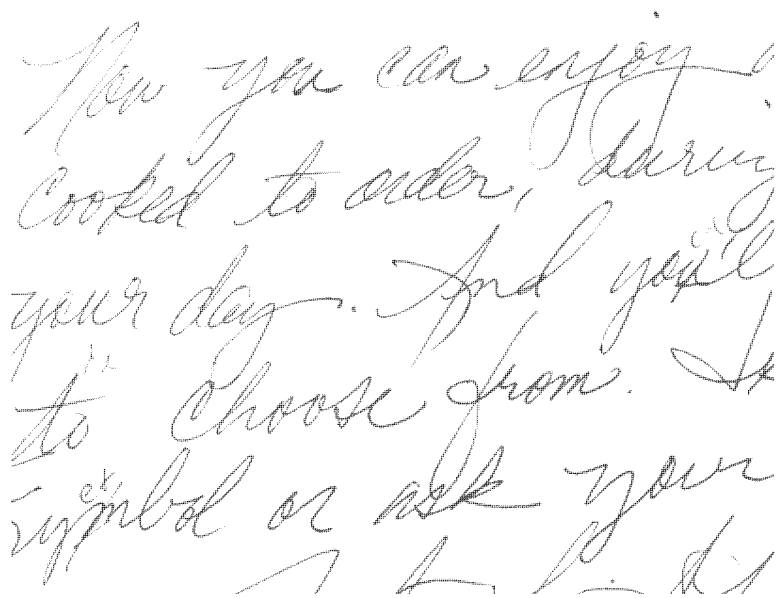 Now you can enjoy
cooked to order, during
your day. And you'll
to choose from.
symbol or ask your